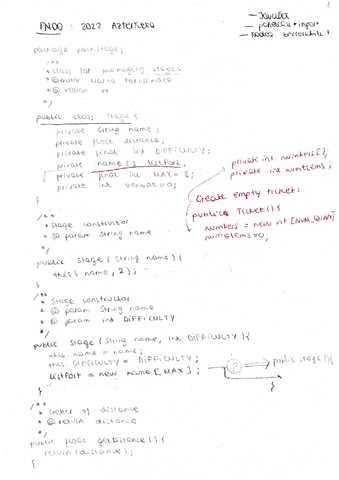 PMOO : 2022 Azterketa
- Javadoc
- package + import
- Kodea berrerabili!
package packstage;
/**
* class for managing stages
* @author
* @version v1
*/
public class Stage {
private String name;
private float distance;
private final int DIFFICULTY;
private name [] listPart;
private final int MAX = 8;
private int
private int numbers[];
private int numItems;
Create empty ticket:
public Ticket() {
numbers = new int
numItems=0;
/**
* Stage constructor
* @ param String name
*/
public Stage (String name) {
this (name, 2);
}
/**
* Stage constructor
* @ param String name
* @ param int DIFFICULTY
*/
public Stage (String name, int DIFFICULTY) {
this.name = name;
this.DIFFICULTY = DIFFICULTY;
listPart = new name [MAX];
? public stage () {
}
/**
* Getter of distance
* @ return distance
*/
public float getDistance() {
return (distance);
}